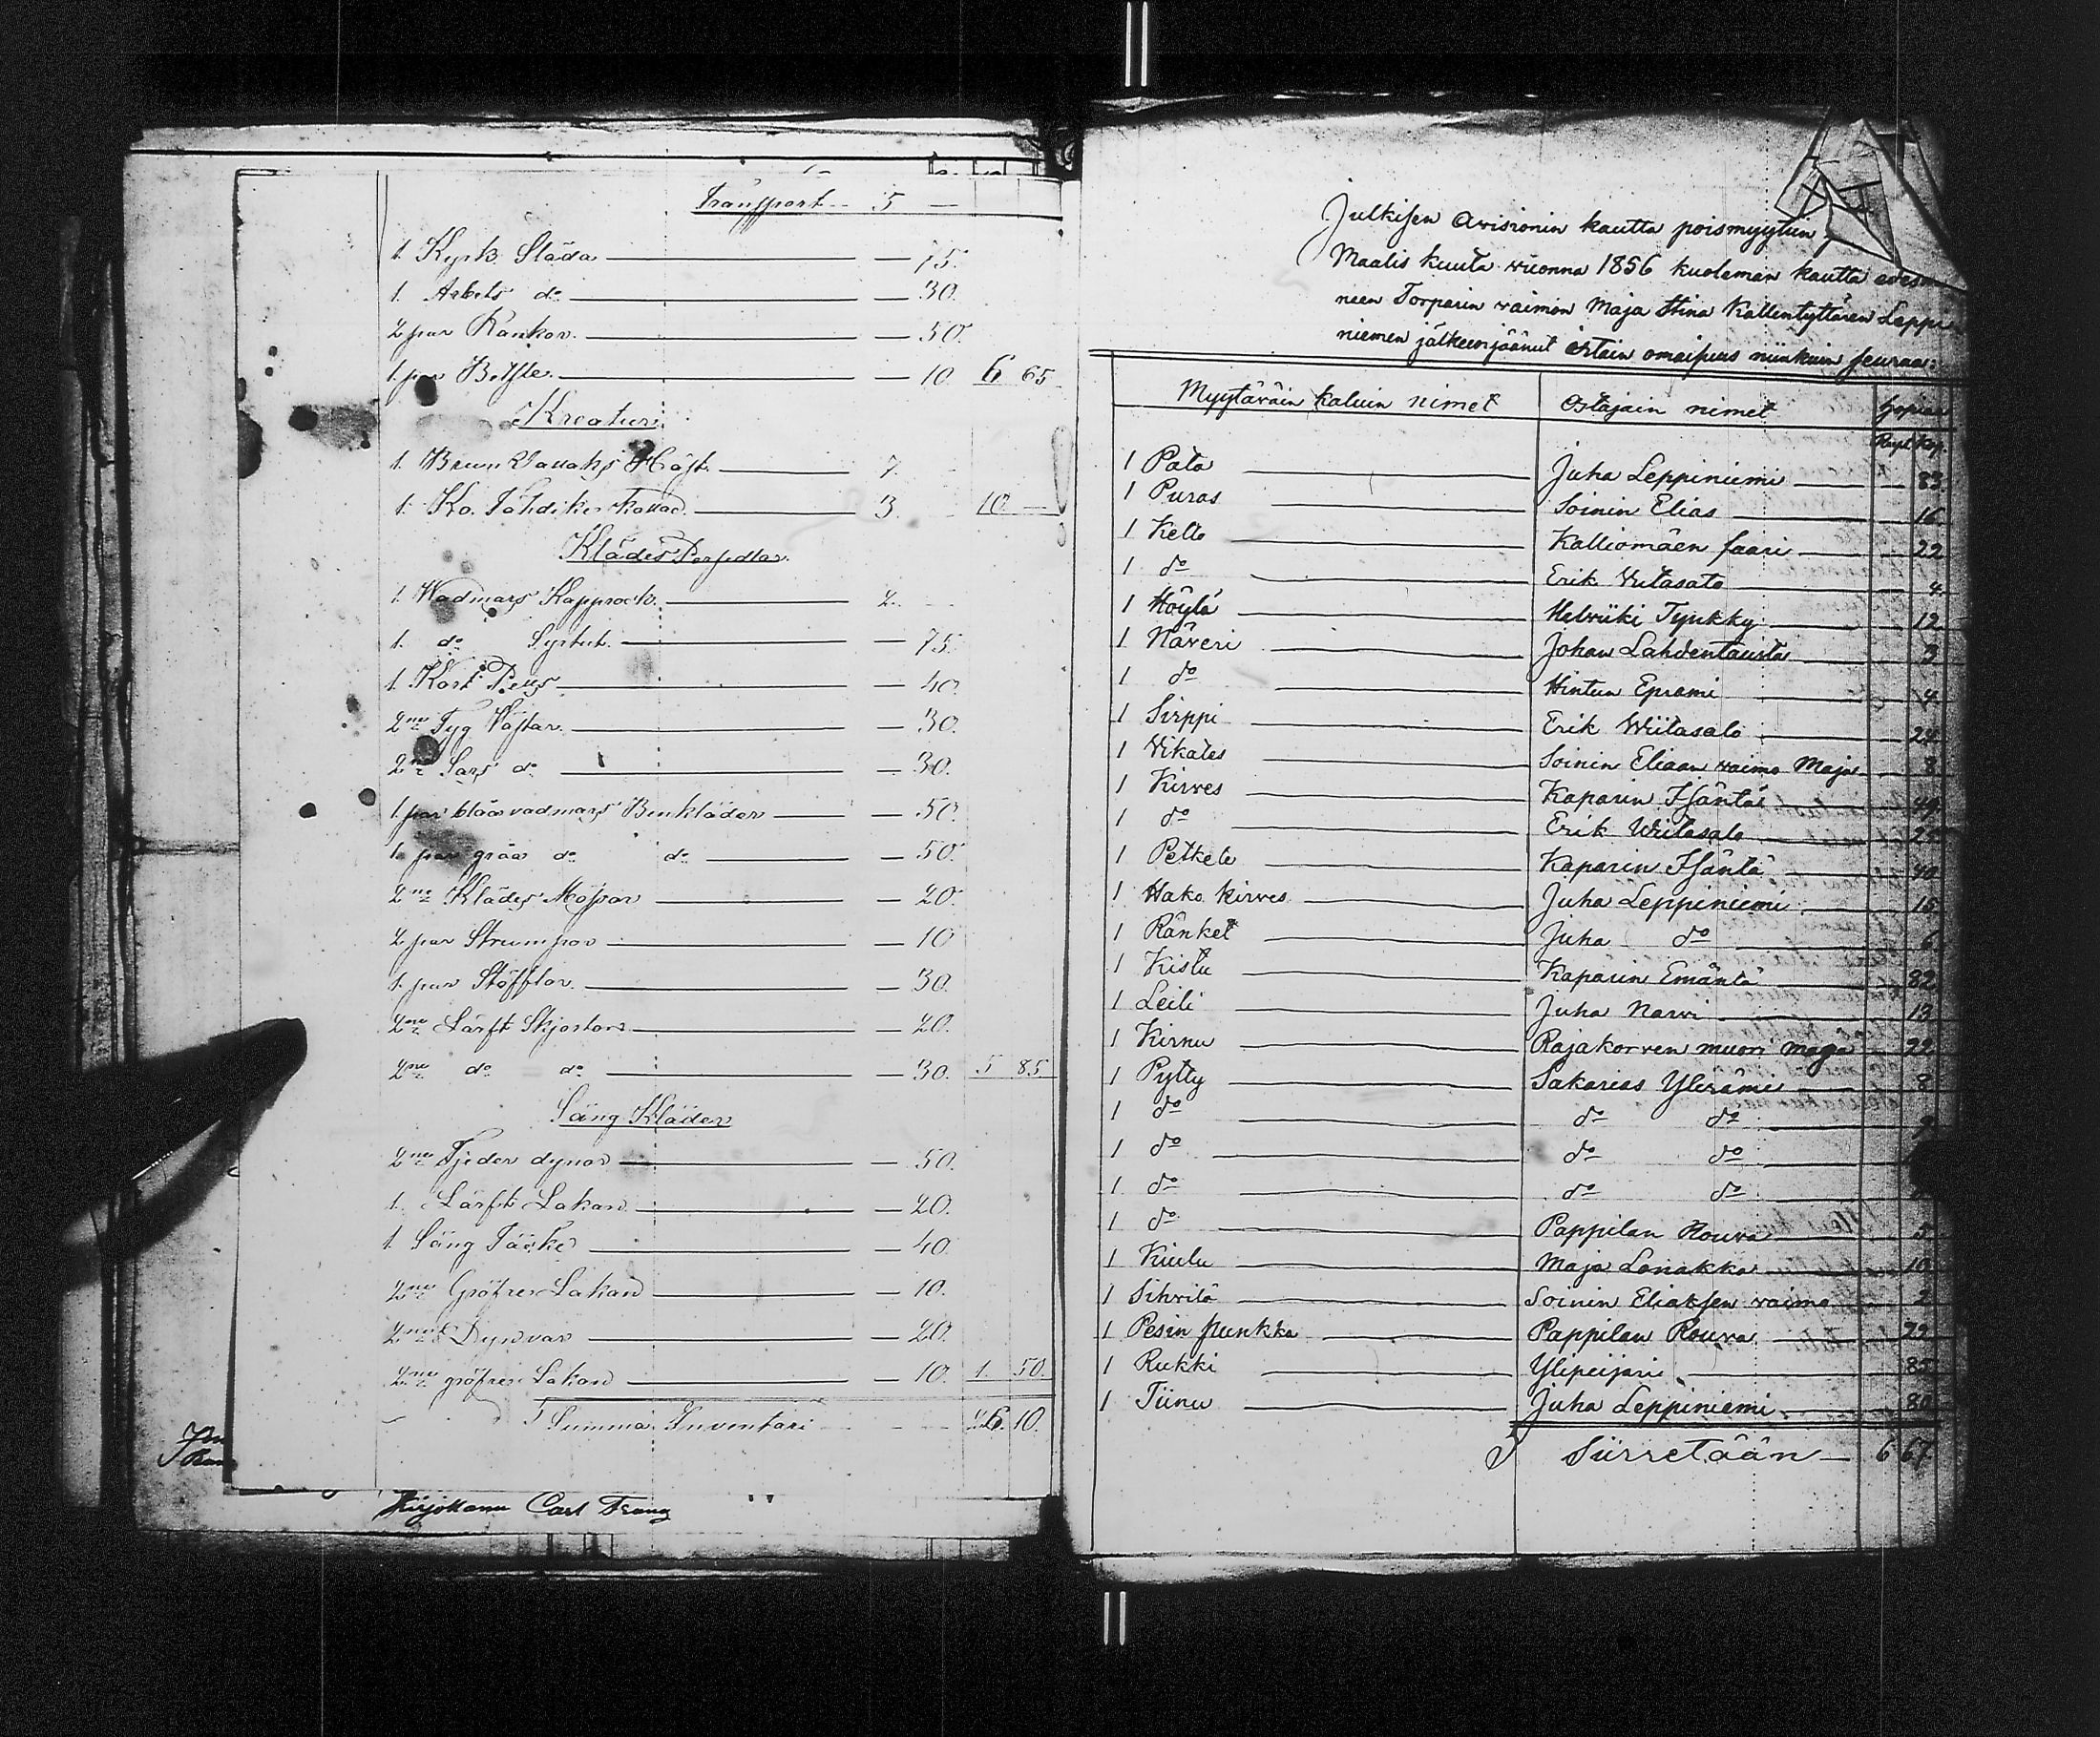 Transport 5 —
1. Kyrk Släda — 75.
1. Arbets do — 30.
2 par Rankor — 50.
1 par — 10. 6 65
Kreatur:
1. Brun Vallaks Häst 7. -
1. Ko. kallad 3. 10 —
Klädes Persedlar.
1. Wadmars Kapprock 2. -
1. do Syrtut — 75.
1. Kort — 40.
2ne Tyg Västar — 30.
2ne Sars do — 30.
1 par blåa vadmars Benkläder — 50.
1. par gråa do do — 50.
2ne Klädes Mössor — 20.
2 par Strumpor — 10
1. par Stöfflor — 30.
2ne Lärft Skjortor — 20.
2ne do do — 30. 5 85
Säng Kläder
2ne Fjeder dynor — 50.
1. Lärft Lakan — 20.
1. Säng Täcke — 40.
2ne Gröfre Lakan — 10.
2ne Dynvar — 20.
2ne gröfre Lakan — 10. 1. 50.
Summa Inventari 26. 10.
Kirjottanu Carl Franz
Julkisen Avisionin kautta poismyytun
Maalis kuuta vuonna 1856 kuoleman kautta
neen Torparin vaimon Maja Stina Kallentyttären Leppi
niemen jälkeenjäänut irtain omaisuus niinkuin seuraa:
Myytäväin kaluin nimet Ostajain nimet Hopias
Rupl Kop.
1 Pata Juha Leppiniemi 83
1 Puras Soinin Elias 16
1 Kello Kalliomäen faari 22
1 do Erik Viitasalo 4
1 Höylä Helviiki Tyukky 12
1 Näveri Johan Lahdentausta 3
1 do Hintun Eprami 4
1 Sirppi Erik Wiitasalo 24
1 Vikates Soinin Eliaan vaimo Maja 8
1 Kirves Kaparin Isäntä 49
1 do Erik Wiitasalo 25
1 Petkele Kaparin Isäntä 40
1 Hako kirves Juha Leppiniemi 15
1 Ränket Juha do 6
1 Kistu Kaparin Emäntä 82
1 Leili Juha Narvi 13
1 Kirnu Rajakorven muori Maja 22
1 Pytty Sakarias Ylirämii 8
1 do do do
1 do do do
1 do do do
1 do Pappilan Rouva 5
1 Kiulu Maja Lanakka 10
1 Sihvilä Soinin Eliaksen vaimo 2
1 Pesin punkka Pappilan Rouva 22
1 Rukki Ylipeijari 85
1 Tiinu Juha Leppiniemi 80
Siirretään 6 67